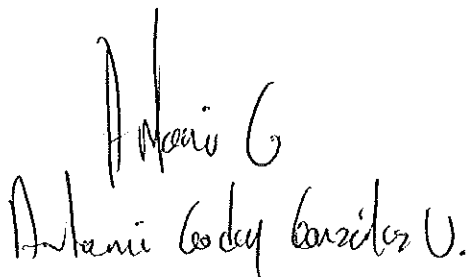 Antonio G
Antonio Godoy González V.